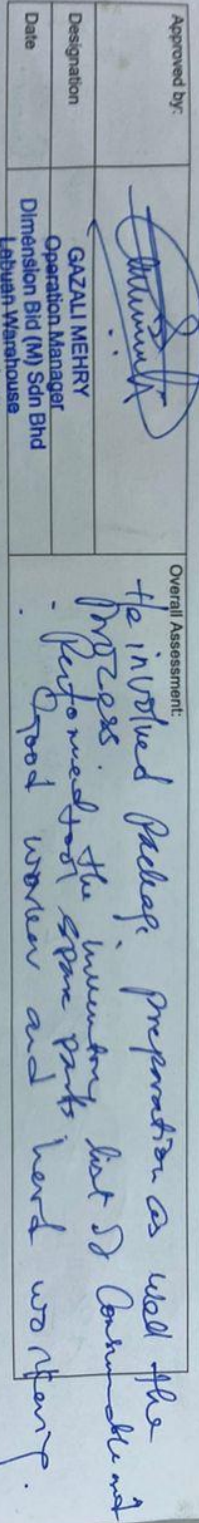 Approved by:
Designation
GAZALI MEHRY
Operation Manager
Date
Dimension Bid (M) Sdn Bhd
Labuan Warehouse
Overall Assessment:
He involved Package preparation as well the
process the inventory list of Consumable and
- Performed tool spare parts
. Good worker and hard working.